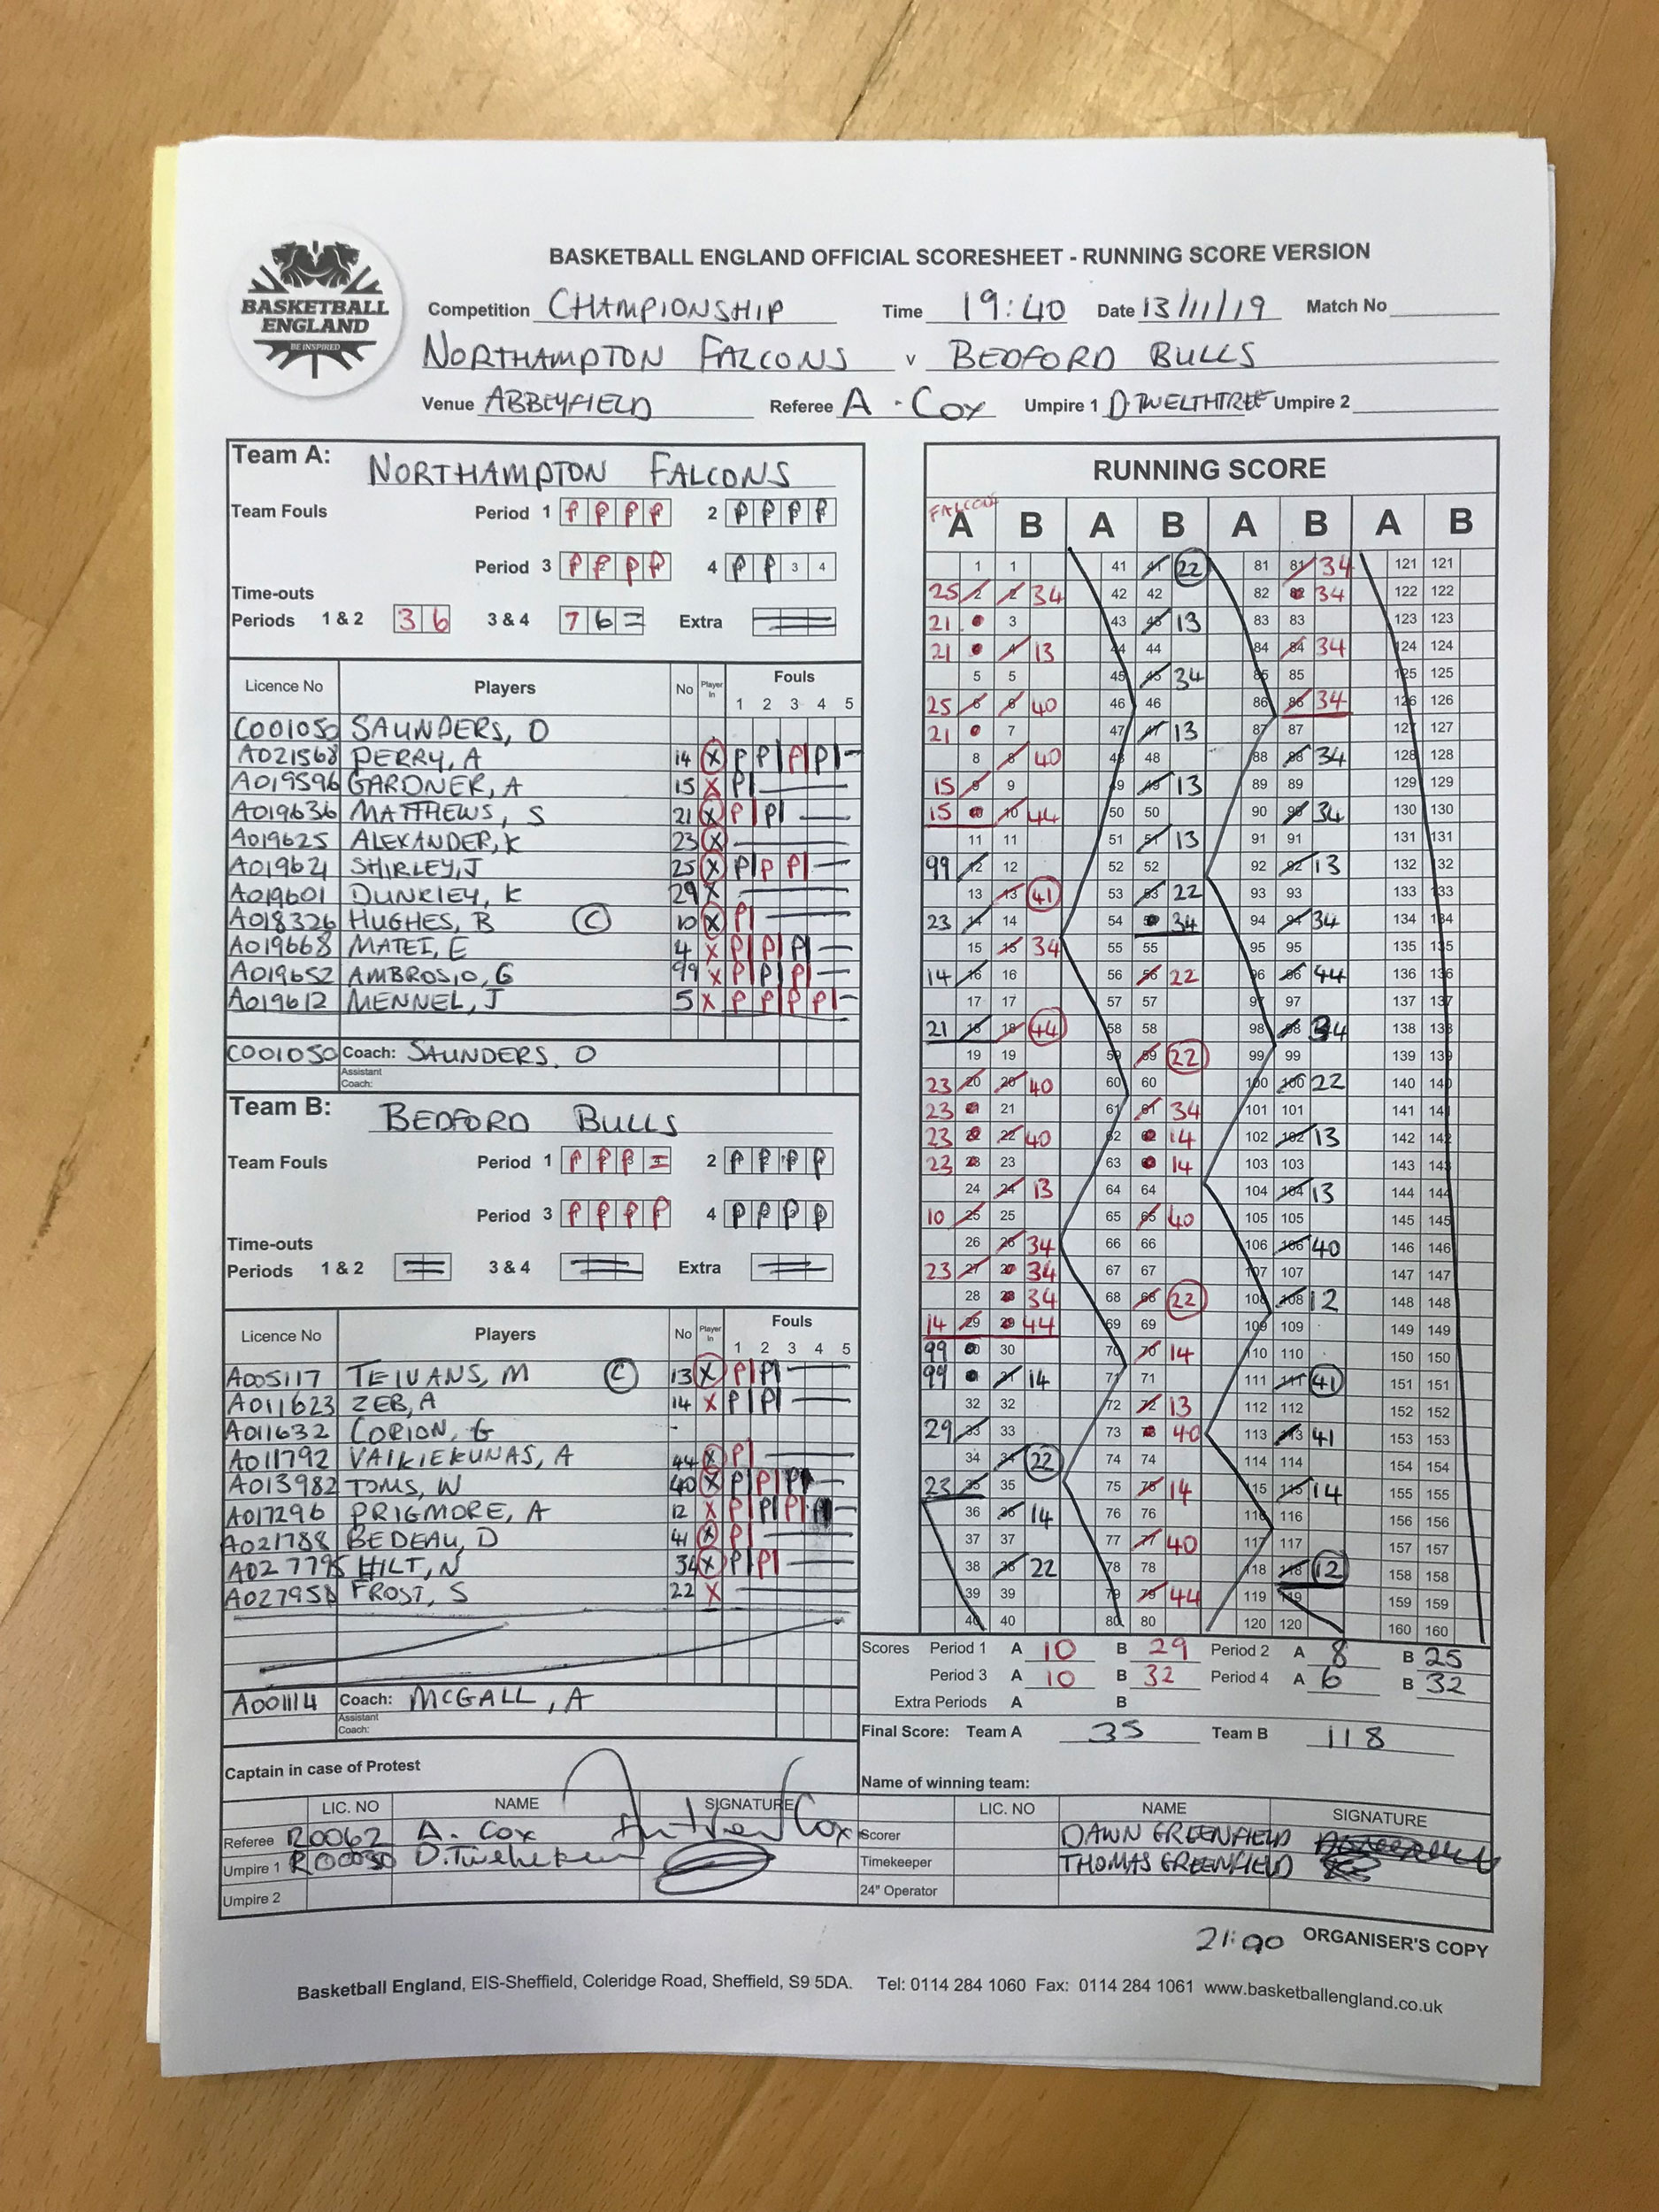 BASKETBALL
ENGLAND
BE INSPIRED
BASKETBALL ENGLAND OFFICIAL SCORESHEET - RUNNING SCORE VERSION
Competition CHAMPIONSHIP Time 19:40 Date 13/11/19 Match No
NORTHAMPTON FALCONS v BEDFORD BULLS
Venue ABBEYFIELD Referee A. COX Umpire 1 D.TWELTHTREE Umpire 2
Team A: NORTHAMPTON FALCONS
Team Fouls Period 1 P P P P 2 P P P P
Period 3 P P P P 4 P P 3 4
Time-outs
Periods 1 & 2 3 6 3 & 4 7 6 = Extra
Licence No Players No Player In Fouls
1 2 3 4 5
C001050 SAUNDERS, O
A021568 PERRY, A 14 X P P P P
A019596 GARDNER, A 15 X P
A019636 MATTHEWS, S 21 X P P
A019625 ALEXANDER, K 23 X
A019621 SHIRLEY, J 25 X P P P
A019601 DUNKLEY, K 29 X
A018326 HUGHES, B C 10 X P
A019668 MATEI, E 4 X P P P
A019652 AMBROSIO, G 99 X P P P
A019612 MENNEL, J 5 X P P P P
C001050 Coach: SAUNDERS. O
Assistant
Coach:
Team B: BEDFORD BULLS
Team Fouls Period 1 P P P = 2 P P P P
Period 3 P P P P 4 P P P P
Time-outs
Periods 1 & 2 3 & 4 Extra
Licence No Players No Player In Fouls
1 2 3 4 5
A005117 TEIVANS, M C 13 X P P
A011623 ZEB, A 14 X P P
A011632 CORION, G -
A011792 VAIKIEKUNAS, A 44 X P
A013982 TOMS, W 40 X P P P
A017296 PRIGMORE, A 12 X P P P
A021788 BEDEAU, D 41 X P
A027795 HILT, N 34 X P P
A027958 FROST, S 22 X
A001114 Coach: MCGALL, A
Assistant
Coach:
Captain in case of Protest
LIC. NO NAME SIGNATURE
Referee R0062 A. COX
Umpire 1 R00030
Umpire 2
RUNNING SCORE
FALCONS
A B A B A B A B
1 1 41 41 22 81 81 34 121 121
25 2 2 34 42 42 82 82 34 122 122
21 3 43 43 13 83 83 123 123
21 4 13 44 44 84 84 34 124 124
5 5 45 45 34 85 85 125 125
25 6 6 40 46 46 86 86 34 126 126
21 7 47 47 13 87 87 127 127
8 8 40 48 48 88 88 34 128 128
15 9 9 49 49 13 89 89 129 129
15 10 44 50 50 90 90 34 130 130
11 11 51 51 13 91 91 131 131
99 12 12 52 52 92 92 13 132 132
13 13 41 53 53 22 93 93 133 133
23 14 14 54 34 94 94 34 134 134
15 15 34 55 55 95 95 135 135
14 16 16 56 56 22 96 96 44 136 136
17 17 57 57 97 97 137 137
21 18 18 44 58 58 98 98 34 138 138
19 19 59 59 22 99 99 139 139
23 20 20 40 60 60 100 100 22 140 140
23 21 21 61 61 34 101 101 141 141
23 22 22 40 62 62 14 102 102 13 142 142
23 23 23 63 63 14 103 103 143 143
24 24 13 64 64 104 104 13 144 144
10 25 25 65 65 40 105 105 145 145
26 26 34 66 66 106 106 40 146 146
23 27 27 34 67 67 107 107 147 147
28 28 34 68 68 22 108 108 12 148 148
14 29 29 44 69 69 109 109 149 149
99 30 30 70 70 14 110 110 150 150
99 31 14 71 71 111 111 41 151 151
32 32 72 72 13 112 112 152 152
29 33 33 73 73 40 113 113 41 153 153
34 34 22 74 74 114 114 154 154
23 35 35 75 75 14 115 115 14 155 155
36 36 14 76 76 116 116 156 156
37 37 77 77 40 117 117 157 157
38 38 22 78 78 118 118 12 158 158
39 39 79 79 44 119 119 159 159
40 40 80 80 120 120 160 160
Scores Period 1 A 10 B 29 Period 2 A 8 B 25
Period 3 A 10 B 32 Period 4 A 6 B 32
Extra Periods A B
Final Score: Team A 35 Team B 118
Name of winning team:
LIC. NO NAME SIGNATURE
Scorer DAWN GREENFIELD
Timekeeper THOMAS GREENFIELD
24" Operator
21:00 ORGANISER'S COPY
Basketball England, EIS-Sheffield, Coleridge Road, Sheffield, S9 5DA. Tel: 0114 284 1060 Fax: 0114 284 1061 www.basketballengland.co.uk